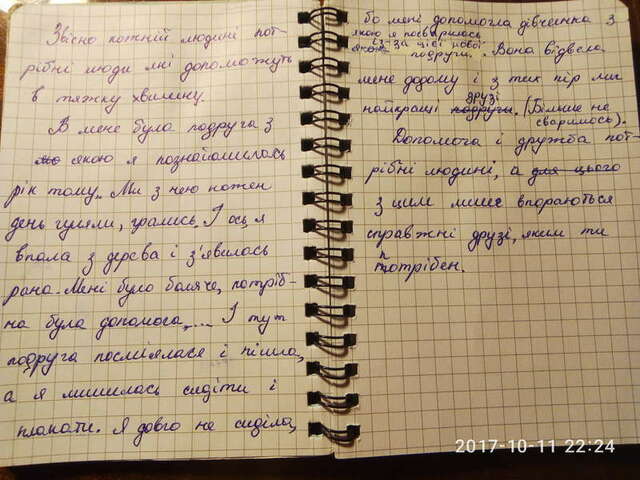 Звісно кожній людині пот-
рібні люди які допоможуть
в тяжку хвилину.
В мене була подруга з
якою я познайомилась
рік тому. Ми з нею кожен
день гуляли, грались. І ось я
впала з дерева і з'явилась
рана. Мені було боляче, потріб-
на була допомога,... І тут
подруга посміялася і пішла,
а я лишилась сидіти і
плакати. Я довго не сиділа,
бо мені допомогла дівчинка з
якою я посварилась
із-за цієї нової
подруги. Вона відвела
мене додому і з тих пір ми
найкращі друзі. (Більше не
сварилось).
Допомога і дружба пот-
рібні людині, а для цього
з цим лише впораються
справжні друзі, яким ти
потрібен.
2017-10-11 22:24